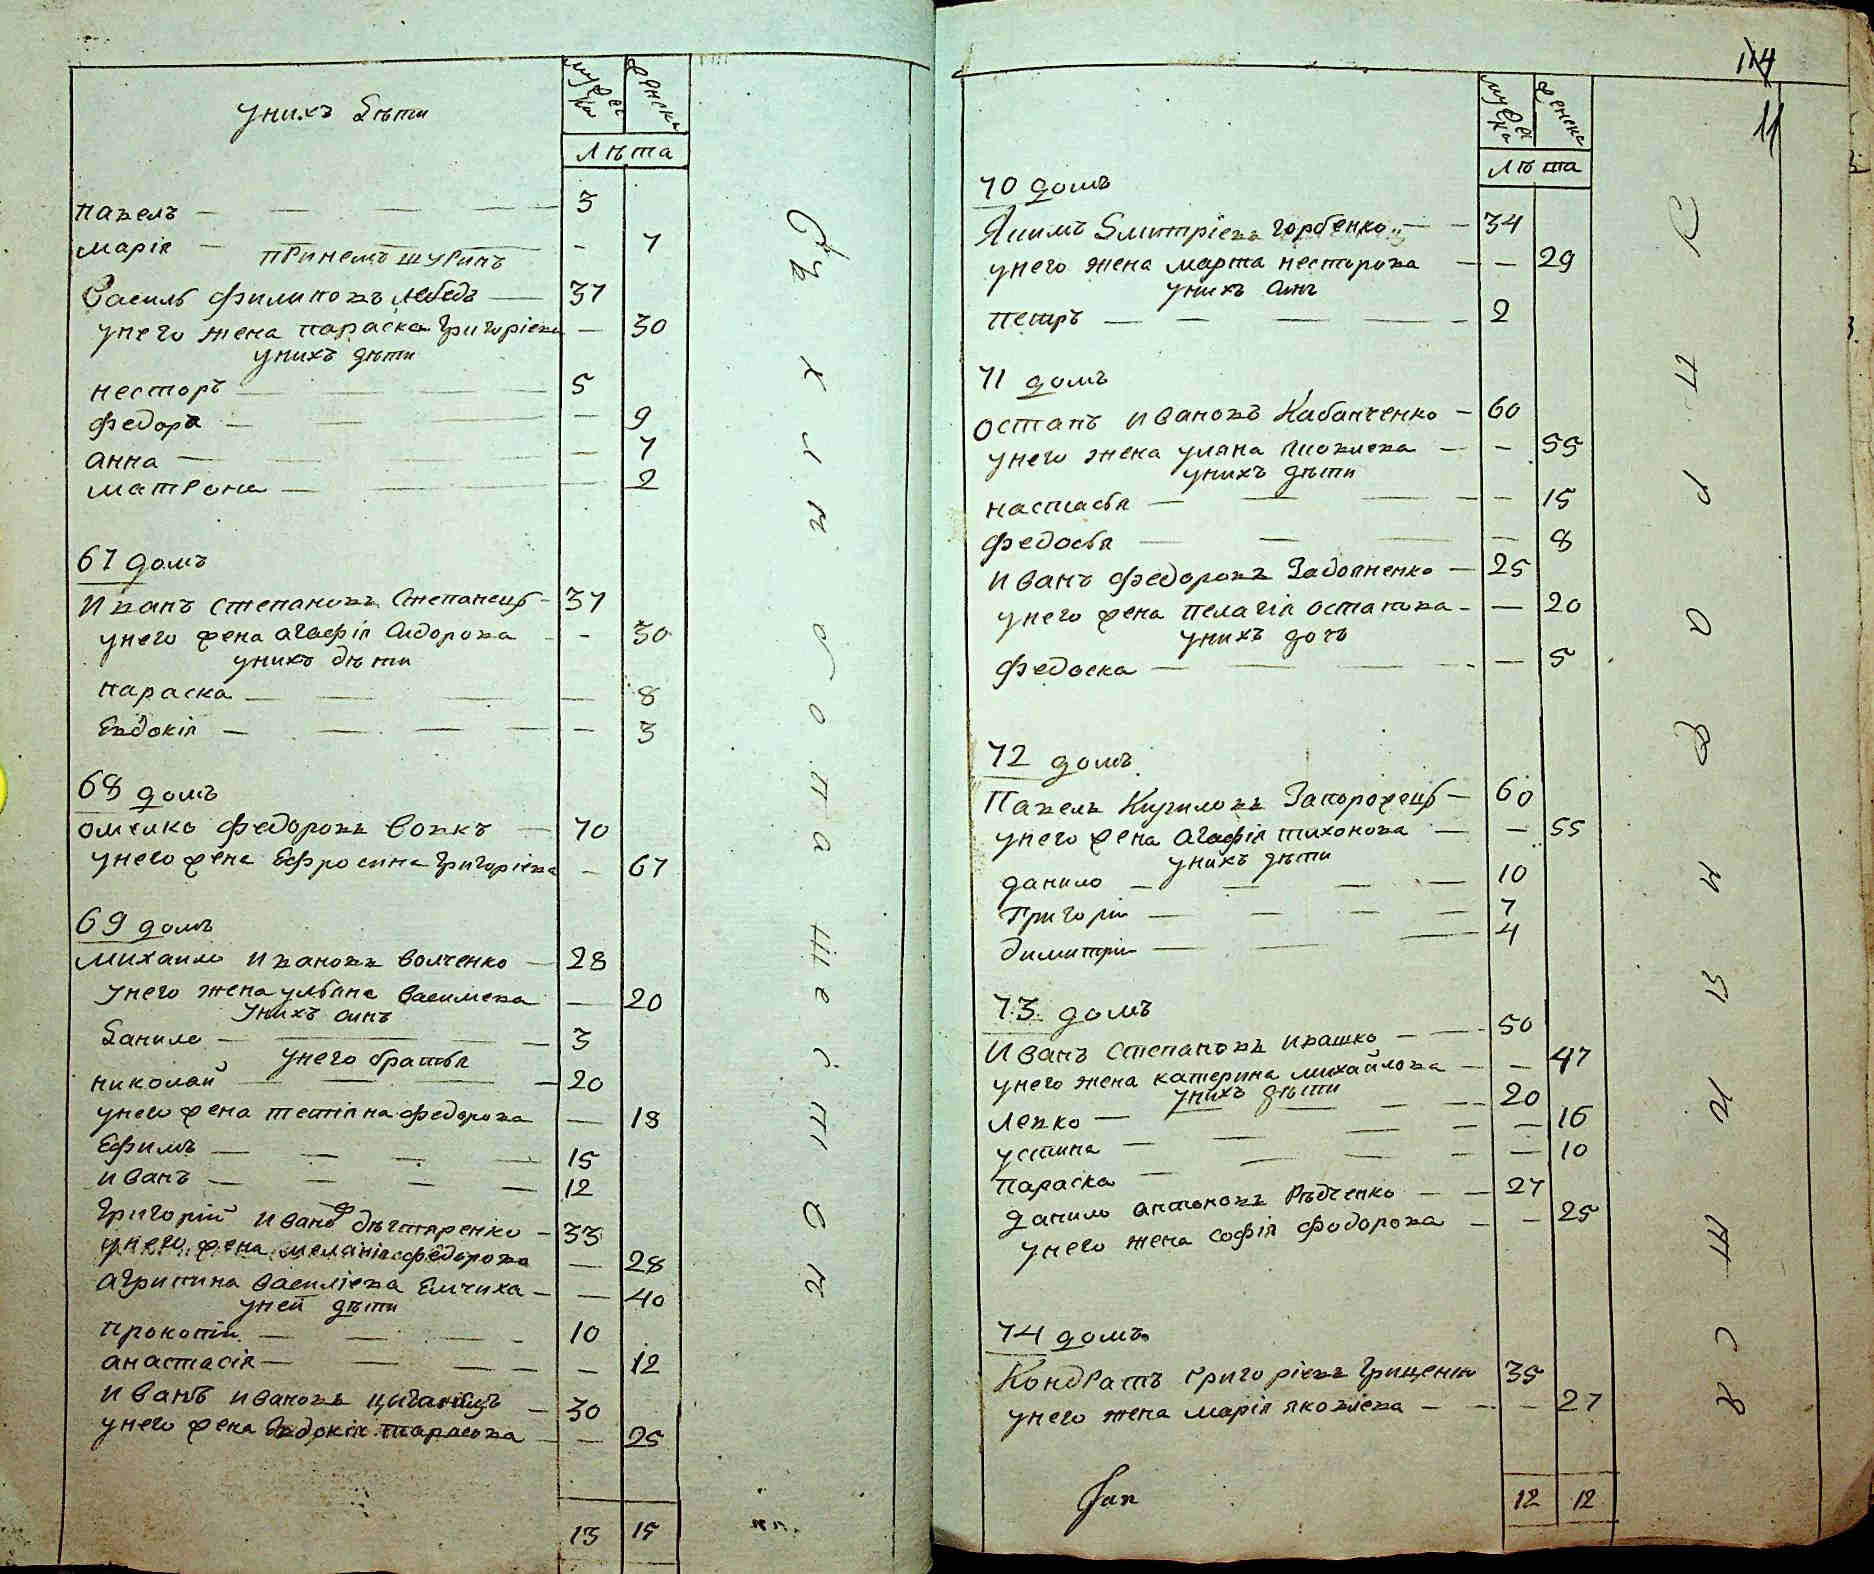 унихъ дѣти
мужеска
женска
лѣта
павелъ — 3
марія — 7
принемъ шуринъ
Василь филиповъ лебедь — 37
унего жена параска григоріева — 30
унихъ дѣти
несторъ — 5
федора — 9
анна — 7
матрона — 2
67 домъ
Иванъ степановъ Степанецъ — 37
унего жена агафія сидорова — 30
унихъ дѣти
параска — 8
Евдокія — 3
68 домъ
омелко федоровъ вовкъ — 70
унего жена Ефросина григоріева — 67
69 домъ
михаило ивановъ волченко — 28
унего жена уляна василиева — 20
унихъ синъ
данило — 3
унего братья
николай — 20
унего жена тетяна федорова — 18
Ефимъ — 15
иванъ — 12
григорій иванов дѣгтяренко — 33
унего жена меланія федорова — 28
агрипина василіева Емчиха — 40
уней дѣти
прокопій — 10
анастасія — 12
иванъ ивановъ — 30
унего жена Явдокія тарасова — 25
13 15
114
11
мужеска
женска
лѣта
70 домъ
Якимъ дмитріевъ горбенко — 34
унего жена марта несторова — 29
унихъ синъ
петръ — 2
71 домъ
остапъ ивановъ Кабанченко — 60
унего жена уляна яковлева — 55
унихъ дѣти
настасья — 15
федосья — 8
иванъ федоровъ — 25
унего жена пелагія остапова — 20
унихъ дочь
федоска — 5
72 домъ
Павелъ Кириловъ Запорожецъ — 60
унего жена агафія тихонова — 55
унихъ дѣти
данило — 10
григорій — 7
димитрій — 4
73 домъ
Иванъ степановъ ивашко — 50
унего жена катерина михайлова — 47
унихъ дѣти
левко — 20
устина — 16
параска — 10
данило антоновъ Рѣдченко — 27
унего жена софія федорова — 25
74 домъ
Кондратъ григоріевъ грищенко — 35
унего жена марія яковлева — 27
12 12